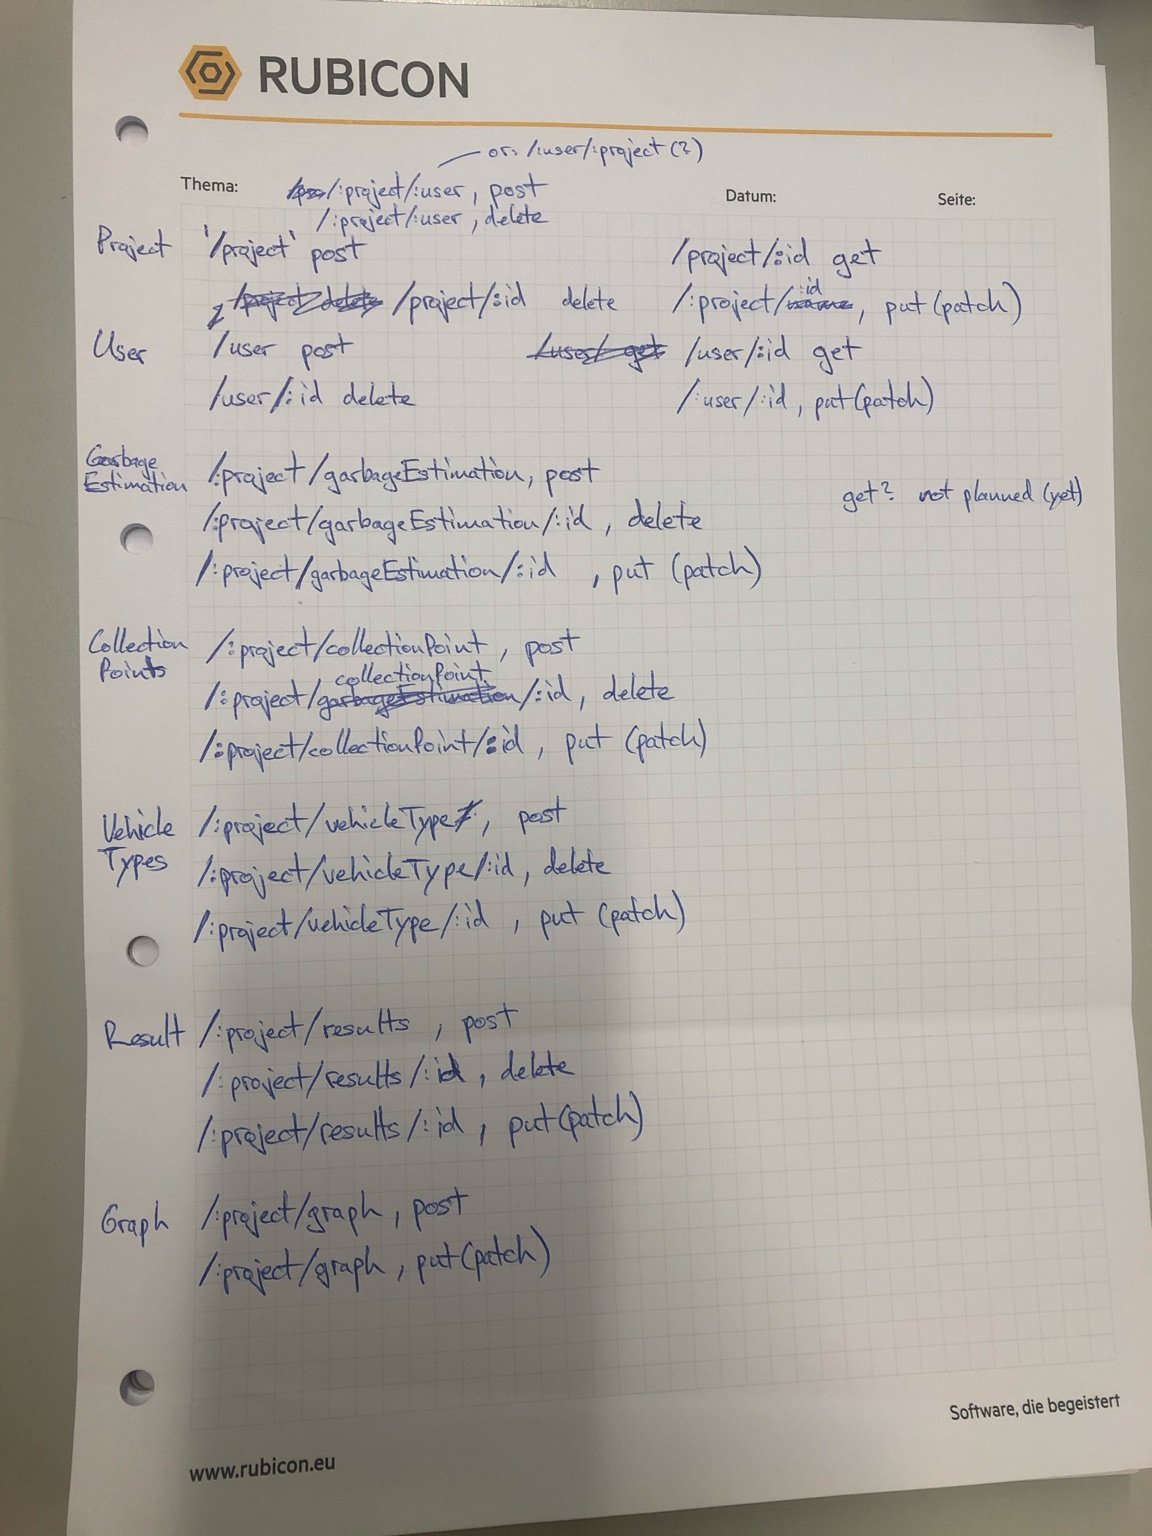 RUBICON
or: /:user/:project (?)
Thema: /:project/:user, post Datum: Seite:
/:project/:user, delete
Project '/project' post /project/:id get
/project delete /project/:id delete /:project/name :id, put (patch)
User /user post /user/ get /user/:id get
/user/:id delete /:user/:id, put (patch)
Garbage Estimation /:project/garbageEstimation, post
get? not planned (yet)
/:project/garbageEstimation/:id, delete
/:project/garbageEstimation/:id, put (patch)
Collection Points /:project/collectionPoint, post
collectionPoint
/:project/garbageEstimation/:id, delete
/:project/collectionPoint/:id, put (patch)
Vehicle Types /:project/vehicleType, post
/:project/vehicleType/:id, delete
/:project/vehicleType/:id, put (patch)
Result /:project/results, post
/:project/results/:id, delete
/:project/results/:id, put (patch)
Graph /:project/graph, post
/:project/graph, put (patch)
Software, die begeistert
www.rubicon.eu